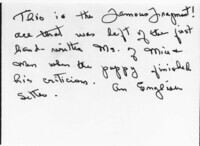 This is the famous fragment!
all that was left of the first
hand-written Ms. of Mice &
Men when the puppy finished
his criticism. An English
Setter.